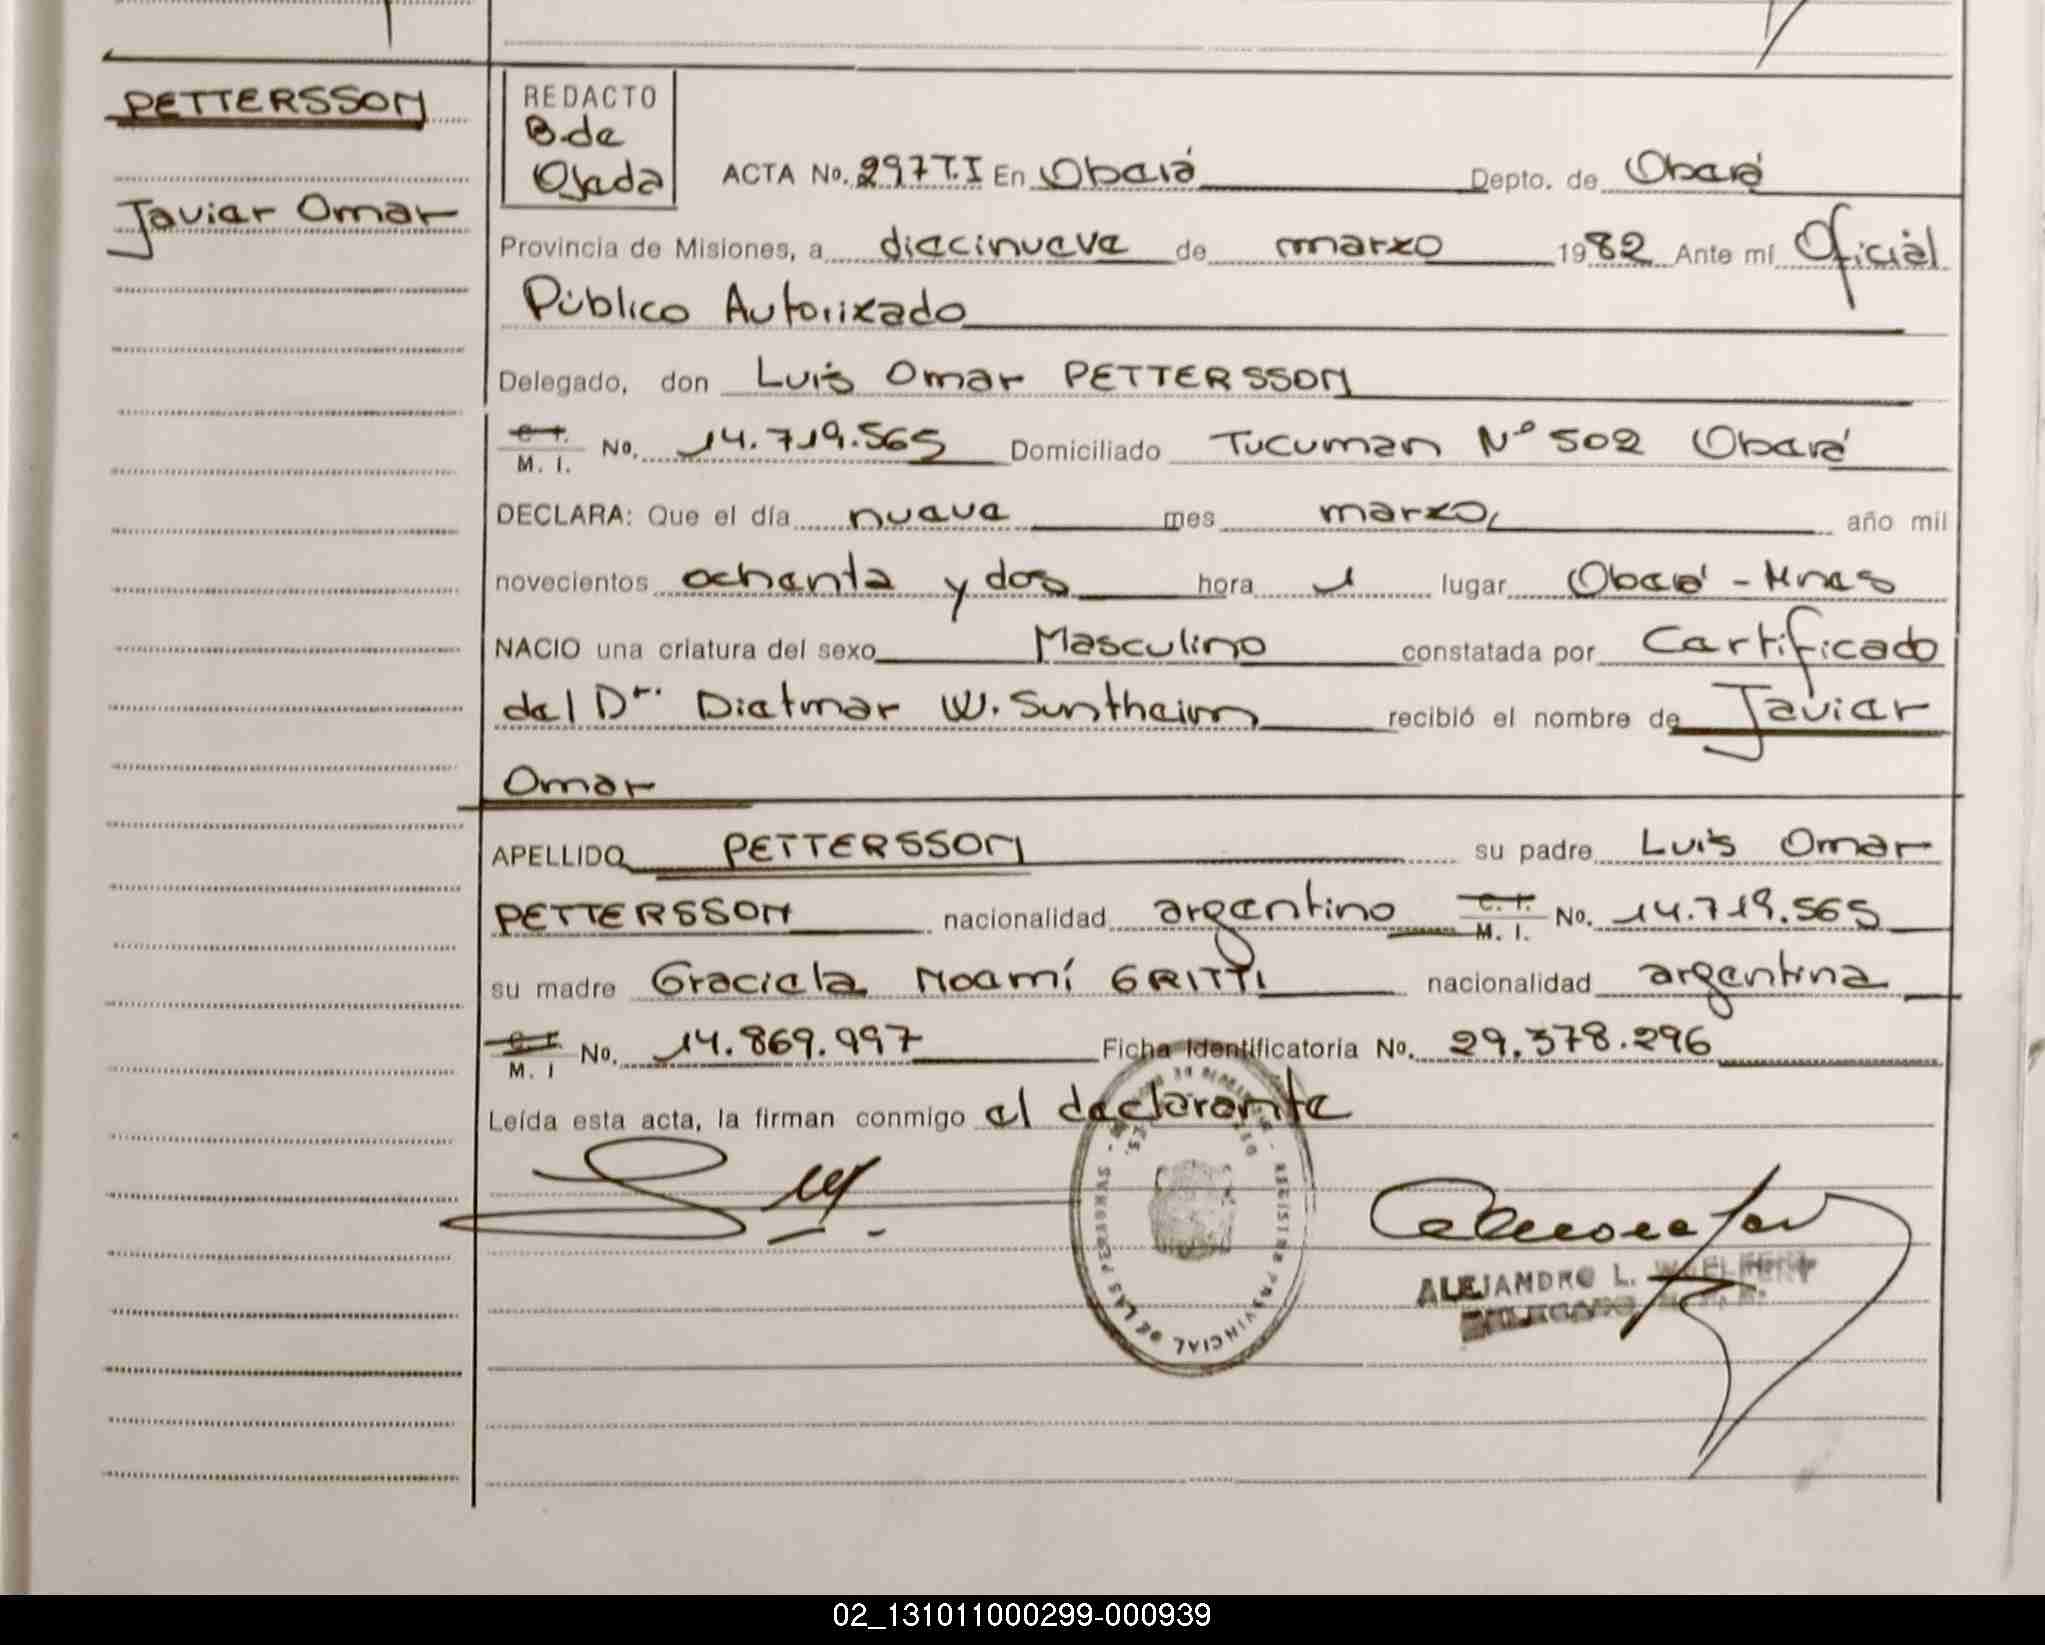 PETTERSSON
Javier Omar
REDACTO
B. de
Ojeda
ACTA No. 297 T.I En Oberá Depto. de Oberá
Provincia de Misiones, a diecinueve de marzo 1982 Ante mí Oficial
Público Autorizado
Delegado, don Luis Omar PETTERSSON
C. I. M. I. No. 14.719.565 Domiciliado Tucuman Nº 502 Oberá
DECLARA: Que el día nueve mes marzo, año mil
novecientos ochenta y dos hora 1 lugar Oberá - Mnes
NACIO una criatura del sexo Masculino constatada por Certificado
del Dr. Dietmar W. Suntheim recibió el nombre de Javier
Omar
APELLIDO PETTERSSON su padre Luis Omar
PETTERSSON nacionalidad argentino C. I. M. I. No. 14.719.565
su madre Graciela Noemí GRITTI nacionalidad argentina
C. I. M. I No. 14.869.997 Ficha Identificatoria No. 29.378.296
Leída esta acta, la firman conmigo el declarante
REGISTRO PROVINCIAL DE LAS PERSONAS
ALEJANDRO L.
02_131011000299-000939